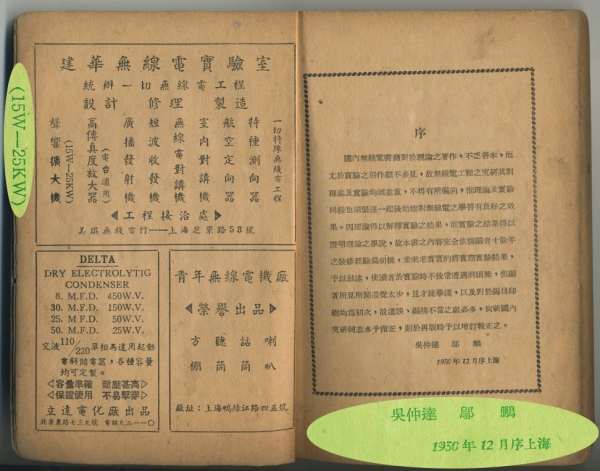 建華無線電實驗室
統辦一切無線電工程
設計 修理 製造
一切特殊無線電工程
特種測向器
航空定向器
室內對講機
無線電對講機
短波收發機
廣播發射機
(電台適用)
高傳真度放大器
(15W—25KW)
聲響擴大機
◁工程接洽處▷
美琪無線電行——上海芝罘路53號
(15W—25KW)
DELTA
DRY ELECTROLYTIG
CONDENSER
8. M.F.D. 450W.V.
30. M.F.D. 150W.V.
25. M.F.D. 50W.V.
50. M.F.D. 25W.V.
交流110/220單相馬達用起動
電解蓄電器，各種容量
均可定製。
◁容量準確 耐壓甚高▷
◁保證使用 不易擊穿▷
立達電化廠出品
北京東路七三九號 電話九二一一〇
青年無線電機廠
◁榮譽出品▷
方聽話喇
棚筒筒叭
廠址：上海鴨綠江路四五號
序
國內無線電書籍對於理論之著作，不乏善本，而
尤於實驗之創作頗不多見，故無線電工程之究研其對
理論及實驗均須並重，不得有所偏向，惟理論及實驗
同樣也須緊逐一起後始能對無線電之學習有良好之效
果。因理論得以解釋實驗之結果，而實驗之結果得以
證明理論之學說，故本書之內容完全依據編者十餘年
之裝修經驗為依據，並老老實實的將實際實驗結果，
予以敍述，使讀者於實驗時不致常遭遇到困難，但編
者所見所聞還覺太少，且才疏學淺，以及對於編排印
刷均為初次，故遺誤，編排不當之處必多，尚祈國內
先研同志多予指正，期於再版時予以增訂較正之。
吳仲達 鄔鵬
1950年12月序上海
吳仲達 鄔鵬
1950年12月序上海